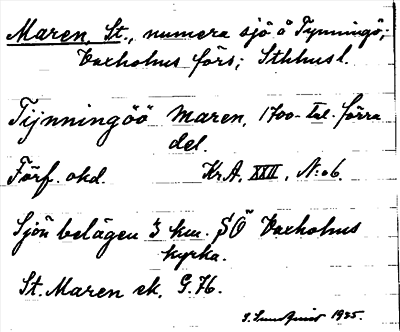 Maren, St., numera sjö å Tynningö;
Vaxholms förs; Sthlms l.
Tijnningöö Maren, 1700-tal. förra
del.
Förf. okd. Kr.A. XXII, N:o 6.
Sjön belägen 3 km. SÖ Vaxholms
kyrka.
St. Maren ek. G.76.
1925.